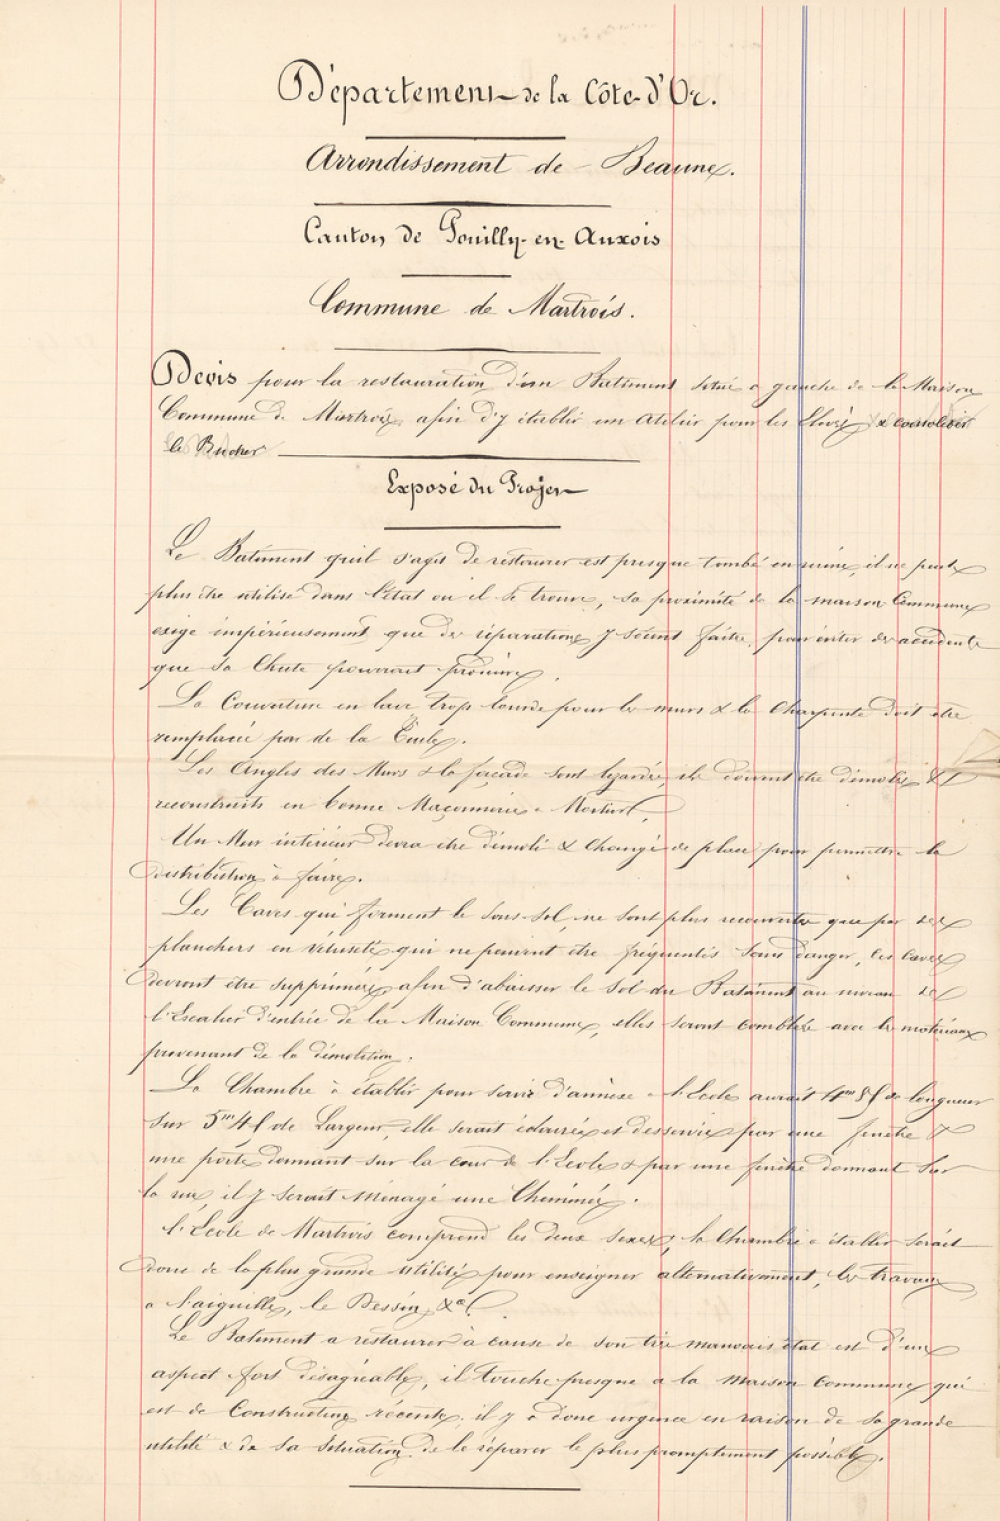 Département de la Côte-d'Or.
Arrondissement de Beaune.
Canton de Pouilly-en-Auxois
Commune de Martrois.
Devis pour la restauration d'un Batiment situé a gauche de la Maison
Commune de Martrois afin d'y établir un atelier pour les Elèves & consolider
le Bucher
Exposé du Projet
Le Batiment qu'il s'agit de restaurer est presque tombé en ruine, il ne peut
plus être utilisé dans l'état ou il se trouve, sa proximité de la maison Commune
exige impérieusement que des réparations y soient faites, pour éviter des accidents
que sa Chute pourrait produire.
La Couverture en lave trop lourde pour les murs & la Charpente doit être
remplacée par de la Tuile.
Les Angles des Murs & la façade sont lézardés, ils doivent être démolis &
reconstruits en bonne Maçonnerie a Mortier.
Un Mur intérieur devra être démoli & changé de place pour permettre la
distribution à faire.
Les Caves qui forment le sous-sol, ne sont plus recouvertes que par des
planchers en vétusté qui ne peuvent être fréquentés sans danger, les caves
devront être supprimées afin d'abaisser le sol du Batiment au niveau de
l'Escalier d'entrée de la Maison Commune, elles seront comblées avec les matériaux
provenant de la démolition.
La Chambre à établir pour servir d'annexe a l'Ecole aurait 4m 85 de longueur
sur 5m 45 de Largeur, elle serait éclairée et desservie par une fenêtre &
une porte donnant sur la cour de l'Ecole & par une fenêtre donnant sur
la rue, il y serait ménagé une Cheminée.
L'Ecole de Martrois comprend les deux sexes, la Chambre a établir serait
donc de la plus grande utilité pour enseigner alternativement, les travaux
a l'aiguille, le Dessin, &a.
Le Batiment a restaurer à cause de son très mauvais état est d'un
aspect fort désagréable, il touche presque a la Maison Commune qui
est de Construction récente, il y a donc urgence en raison de sa grande
utilité & de sa situation de le réparer le plus promptement possible.